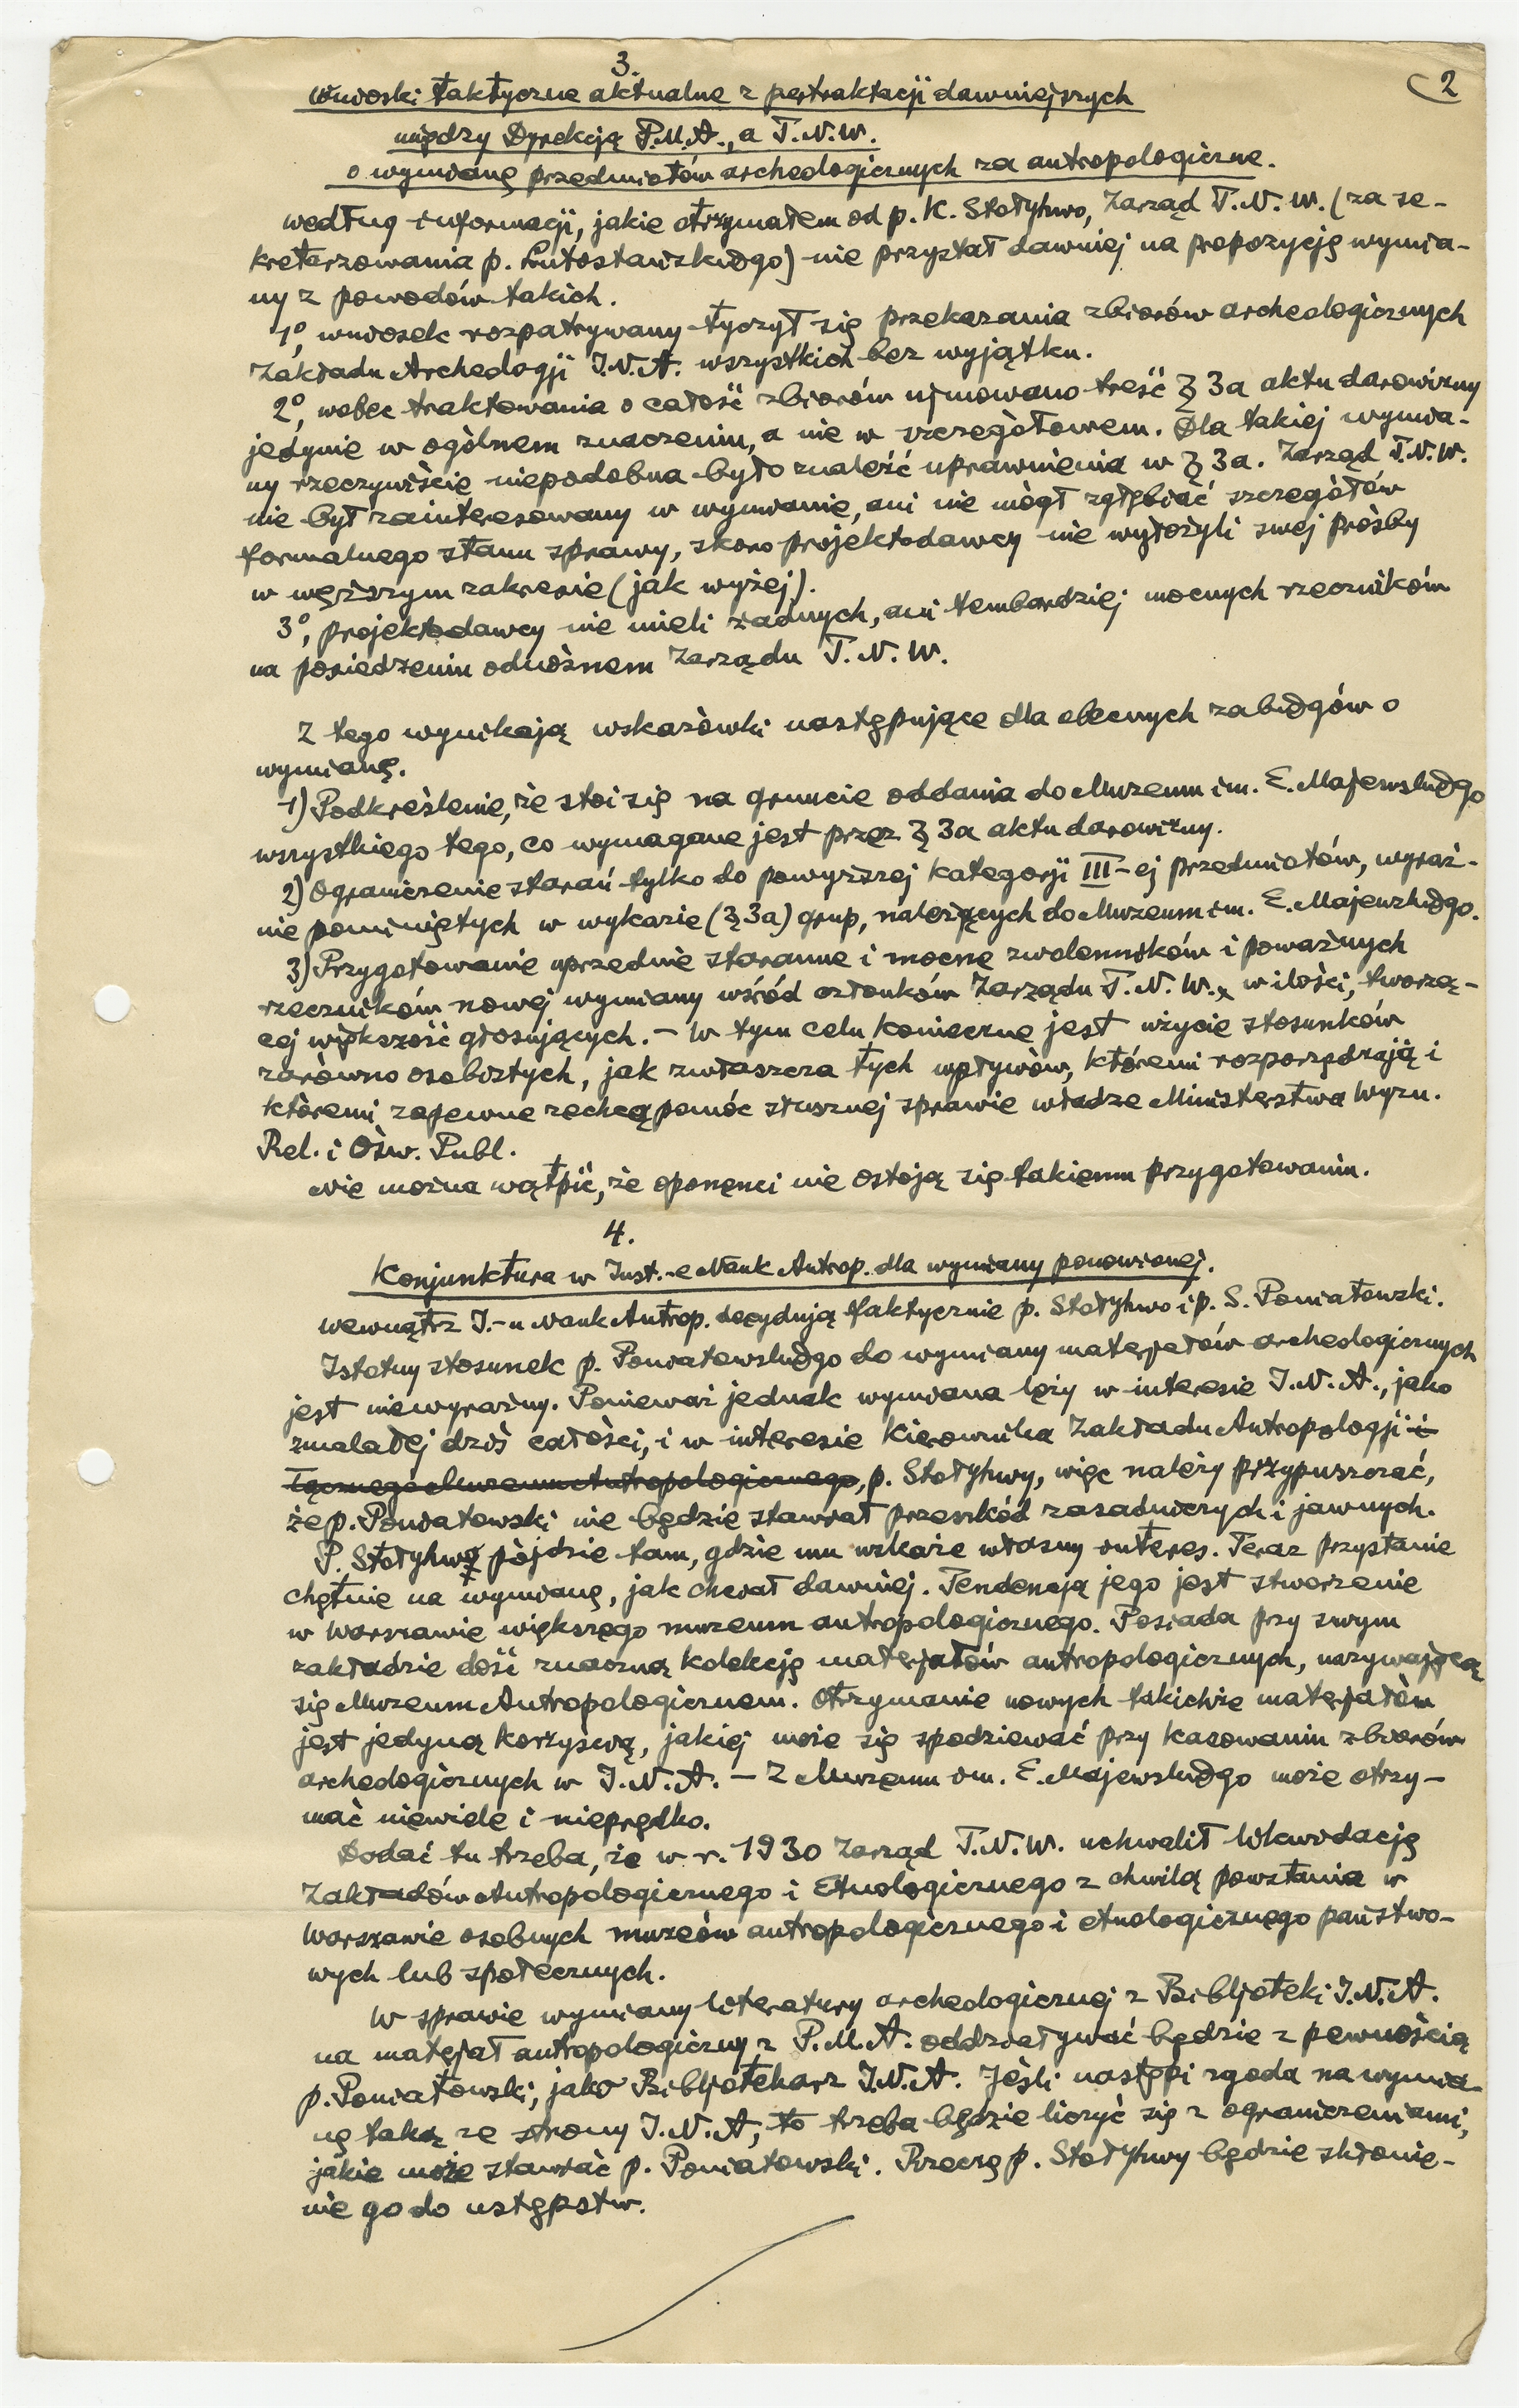 2
3.
Wnioski taktyczne aktualne z pertraktacji dawniejszych
między Dyrekcją P.M.A., a T.N.W.
o wymianę przedmiotów archeologicznych za antropologiczne.
według informacji, jakie otrzymałem od p. K. Stołyhwo, Zarząd T.N.W. (za se-
kretarzowania p. Lutosławskiego) nie przystał dawniej na propozycję wymia-
ny z powodów takich.
1º, wniosek rozpatrywany tyczył się przekazania zbiorów archeologicznych
Zakładu Archeologji I.N.A. wszystkich bez wyjątku.
2º, wobec traktowania o całość zbiorów ujmowano treść § 3a aktu darowizny
jedynie w ogólnem znaczeniu, a nie w szczegółowem. Dla takiej wymia-
ny rzeczywiście niepodobna było znaleźć uprawnienia w § 3a. Zarząd T.N.W.
nie był zainteresowany w wymianie, ani nie mógł zgłębiać szczegółów
formalnego stanu sprawy, skoro projektodawcy nie wyłożyli swej prośby
w węższym zakresie (jak wyżej).
3º, projektodawcy nie mieli żadnych, ani tembardziej mocnych rzeczników
na posiedzeniu odnośnem Zarządu T.N.W.
Z tego wynikają wskazówki następujące dla obecnych zabiegów o
wymianę.
1) Podkreślenie, że stoi się na gruncie oddania do Muzeum im. E. Majewskiego
wszystkiego tego, co wymagane jest przez § 3a aktu darowizny.
2) Ograniczenie starań tylko do powyższej kategorji III-ej przedmiotów, wyraź-
nie pominiętych w wykazie (§ 3a) grup, należących do Muzeum im. E. Majewskiego.
3) Przygotowanie uprzednie staranne i mocne zwolenników i poważnych
rzeczników nowej wymiany wśród członków Zarządu T.N.W., w ilości, tworzą-
cej większość głosujących. – W tym celu konieczne jest użycie stosunków
zarówno osobistych, jak zwłaszcza tych wpływów, któremi rozporządzają i
któremi zapewne zechcą pomóc słusznej sprawie władze Ministerstwa Wyzn.
Rel. i Ośw. Publ.
Nie można wątpić, że oponenci nie ostoją się takiemu przygotowaniu.
4.
Konjunktura w Inst.-e Nauk Antrop. dla wymiany ponowionej.
Wewnątrz I.-u Nauk Antrop. decydują faktycznie p. Stołyhwo i p. S. Poniatowski.
Istotny stosunek p. Poniatowskiego do wymiany materjałów archeologicznych
jest niewyraźny. Ponieważ jednak wymiana leży w interesie I.N.A., jako
zmalałej dziś całości, i w interesie Kierownika Zakładu Antropologji i
łącznego Muzeum Antropologicznego, p. Stołyhwy, więc należy przypuszczać,
że p. Poniatowski nie będzie stawiał przeszkód zasadniczych i jawnych.
P. Stołyhwo pójdzie tam, gdzie mu wskaże własny interes. Teraz przystanie
chętnie na wymianę, jak chciał dawniej. Tendencją jego jest stworzenie
w Warszawie większego muzeum antropologicznego. Posiada przy swym
zakładzie dość znaczną kolekcję materjałów antropologicznych, nazywającą
się Muzeum Antropologicznem. Otrzymanie nowych takichże materjałów
jest jedyną korzyścią, jakiej może się spodziewać przy kasowaniu zbiorów
archeologicznych w I.N.A. – Z Muzeum im. E. Majewskiego może otrzy-
mać niewiele i nieprędko.
Dodać tu trzeba, że w r. 1930 Zarząd T.N.W. uchwalił likwidację
Zakładów Antropologicznego i Etnologicznego z chwilą powstania w
Warszawie osobnych muzeów antropologicznego i etnologicznego państwo-
wych lub społecznych.
W sprawie wymiany literatury archeologicznej z Bibljoteki I.N.A.
na materjał antropologiczny z P.M.A. oddziaływać będzie z pewnością
p. Poniatowski, jako Bibljotekarz I.N.A. Jeśli nastąpi zgoda na wymia-
nę taką ze strony I.N.A., to trzeba będzie liczyć się z ograniczeniami,
jakie może stawiać p. Poniatowski. Rzeczą p. Stołyhwy będzie skłonie-
nie go do ustępstw.